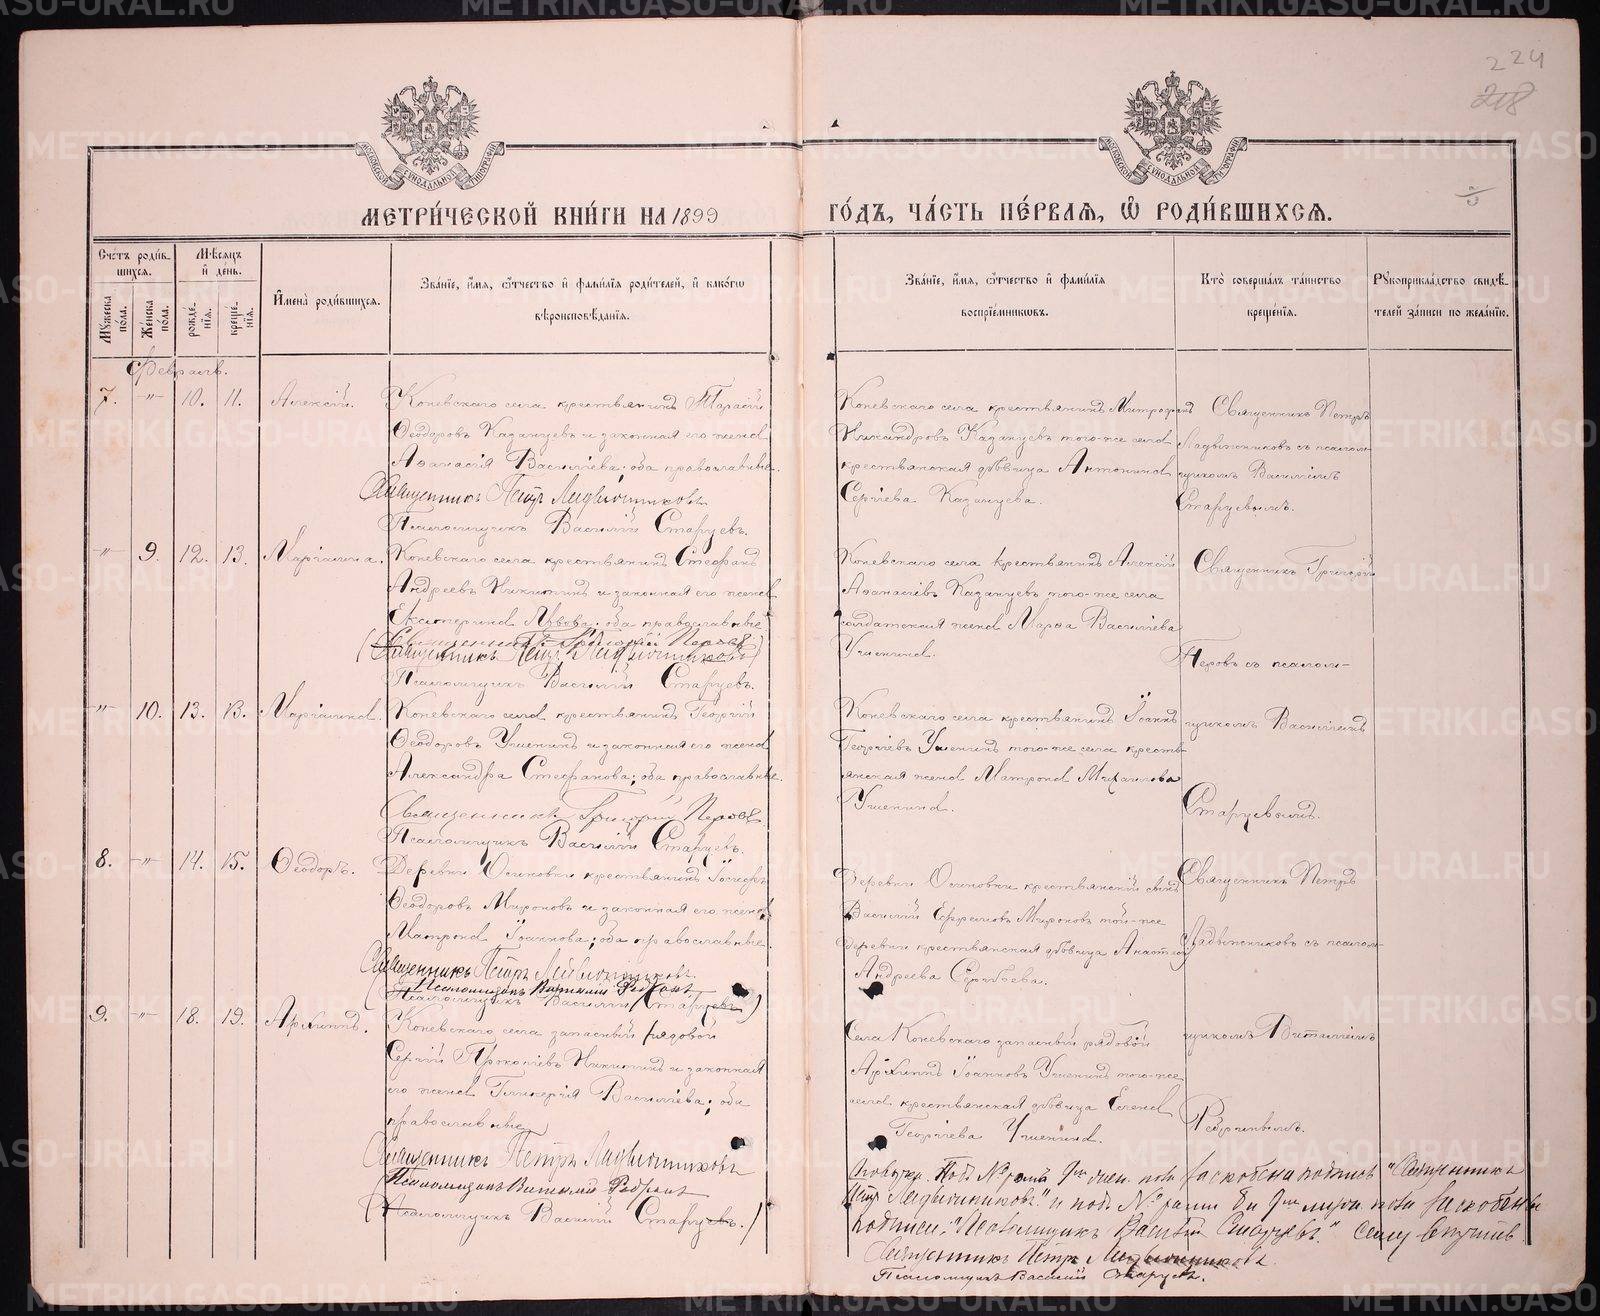 224
218
МЕТРИ́ЧЕСКОЙ КНИ́ГИ НА 1899
ГО́ДЪ, ЧА́СТЬ ПЕ́РВАЯ, Ѡ҆ РОДИ́ВШИХСЯ.
Сче́тъ роди́в-
шихся.
Мѣ́сяцъ
и҆ де́нь.
Му́жеска
по́ла.
Же́нска
по́ла.
рожде́-
нїя.
креще́-
нїя.
И҆мена̀ роди́вшихся.
Зва́нїе, и҆́мя, ѻ҆́тчество и҆ фами́лїя роди́телей, и҆ како́гѡ
вѣроисповѣ́данїя.
Зва́нїе, и҆́мя, ѻ҆́тчество и҆ фами́лїя
воспрїе́мникѡвъ.
Кто̀ соверша́лъ та́инство
креще́нїя.
Рꙋкоприкла́дство свидѣ́-
телей за́писи по жела́нїю.
Февраль.
7. -"- 10. 11. Алексій.
Коневскаго села крестьянинъ Тарасій
Ѳеодоровъ Казанцевъ и законная его жена
Аѳанасія Васильева; оба православные.
Священникъ Петръ Ладыжниковъ
Псаломщикъ Василій Старцевъ.
Коневскаго села крестьянинъ Митрофанъ
Никандровъ Казанцевъ того-же села
крестьянская дѣвица Антонина
Сергіева Казанцева.
Священникъ Петръ
Ладыжниковъ съ псалом-
щикомъ Василіемъ
Старцевымъ.
-"- 9. 12. 13. Маріамна.
Коневскаго села крестьянинъ Стефанъ
Андреевъ Никитинъ и законная его жена
Екатерина Львова; оба православные
Священникъ Григорій Перовъ
(Священникъ Петръ Ладыжниковъ)
Псаломщикъ Василій Старцевъ.
Коневскаго села крестьянинъ Алексій
Аѳанасіевъ Казанцевъ того-же села
солдатская жена Марѳа Васильева
Ушенина.
Священникъ Григорій
Перовъ съ псалом-
-"- 10. 13. 13. Маріамна.
Коневскаго села крестьянинъ Георгій
Ѳеодоровъ Ушенинъ и законная его жена
Александра Стефанова; оба православные.
Священникъ Григорій Перовъ
Псаломщикъ Василій Старцевъ.
Коневскаго села крестьянинъ Іоаннъ
Георгіевъ Ушенинъ того-же села кресть-
янская жена Матрона Михаилова
Ушенина.
щикомъ Василіемъ
Старцевымъ.
8. -"- 14. 15. Ѳеодоръ.
Деревни Осиновки крестьянинъ Іосифъ
Ѳеодоровъ Мироновъ и законная его жена
Матрона Іоаннова; оба православные.
Священникъ Петръ Ладыжниковъ.
(Псаломщикъ Василій Старцевъ)
Деревни Осиновки крестьянскій сынъ
Василій Ефремовъ Мироновъ той-же
деревни крестьянская дѣвица
Андреева
Священникъ Петръ
Ладыжниковъ съ псалом-
9. -"- 18. 19. Архиппъ.
Коневскаго села запасный рядовой
Сергій Прокопіевъ Никитинъ и законная
его жена Гликерія Васильева; оба
православные
Священникъ Петръ Ладыжниковъ
Псаломщикъ Виталій
(Псаломщикъ Василій Старцевъ.)
Села Коневскаго запасный рядовой
Архиппъ Іоанновъ Ушенинъ того-же
села крестьянская дѣвица Елена
Георгіева Ушенина.
щикомъ Виталіемъ
"Священникъ
Петръ Ладыжниковъ" и подъ №
подписи: "Псаломщикъ Василій Старцевъ."
Священникъ Петръ Ладыжниковъ.
Псаломщикъ Василій Старцевъ.